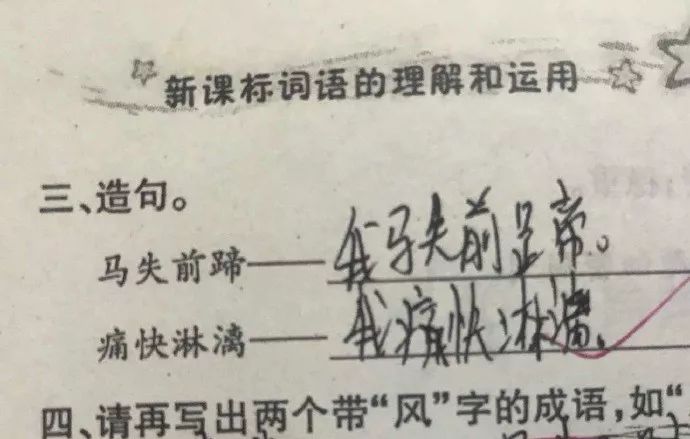 新课标词语的理解和运用
三、造句。
马失前蹄——我马失前蹄。
痛快淋漓——我痛快淋漓。
四、请再写出两个带“风”字的成语，如“